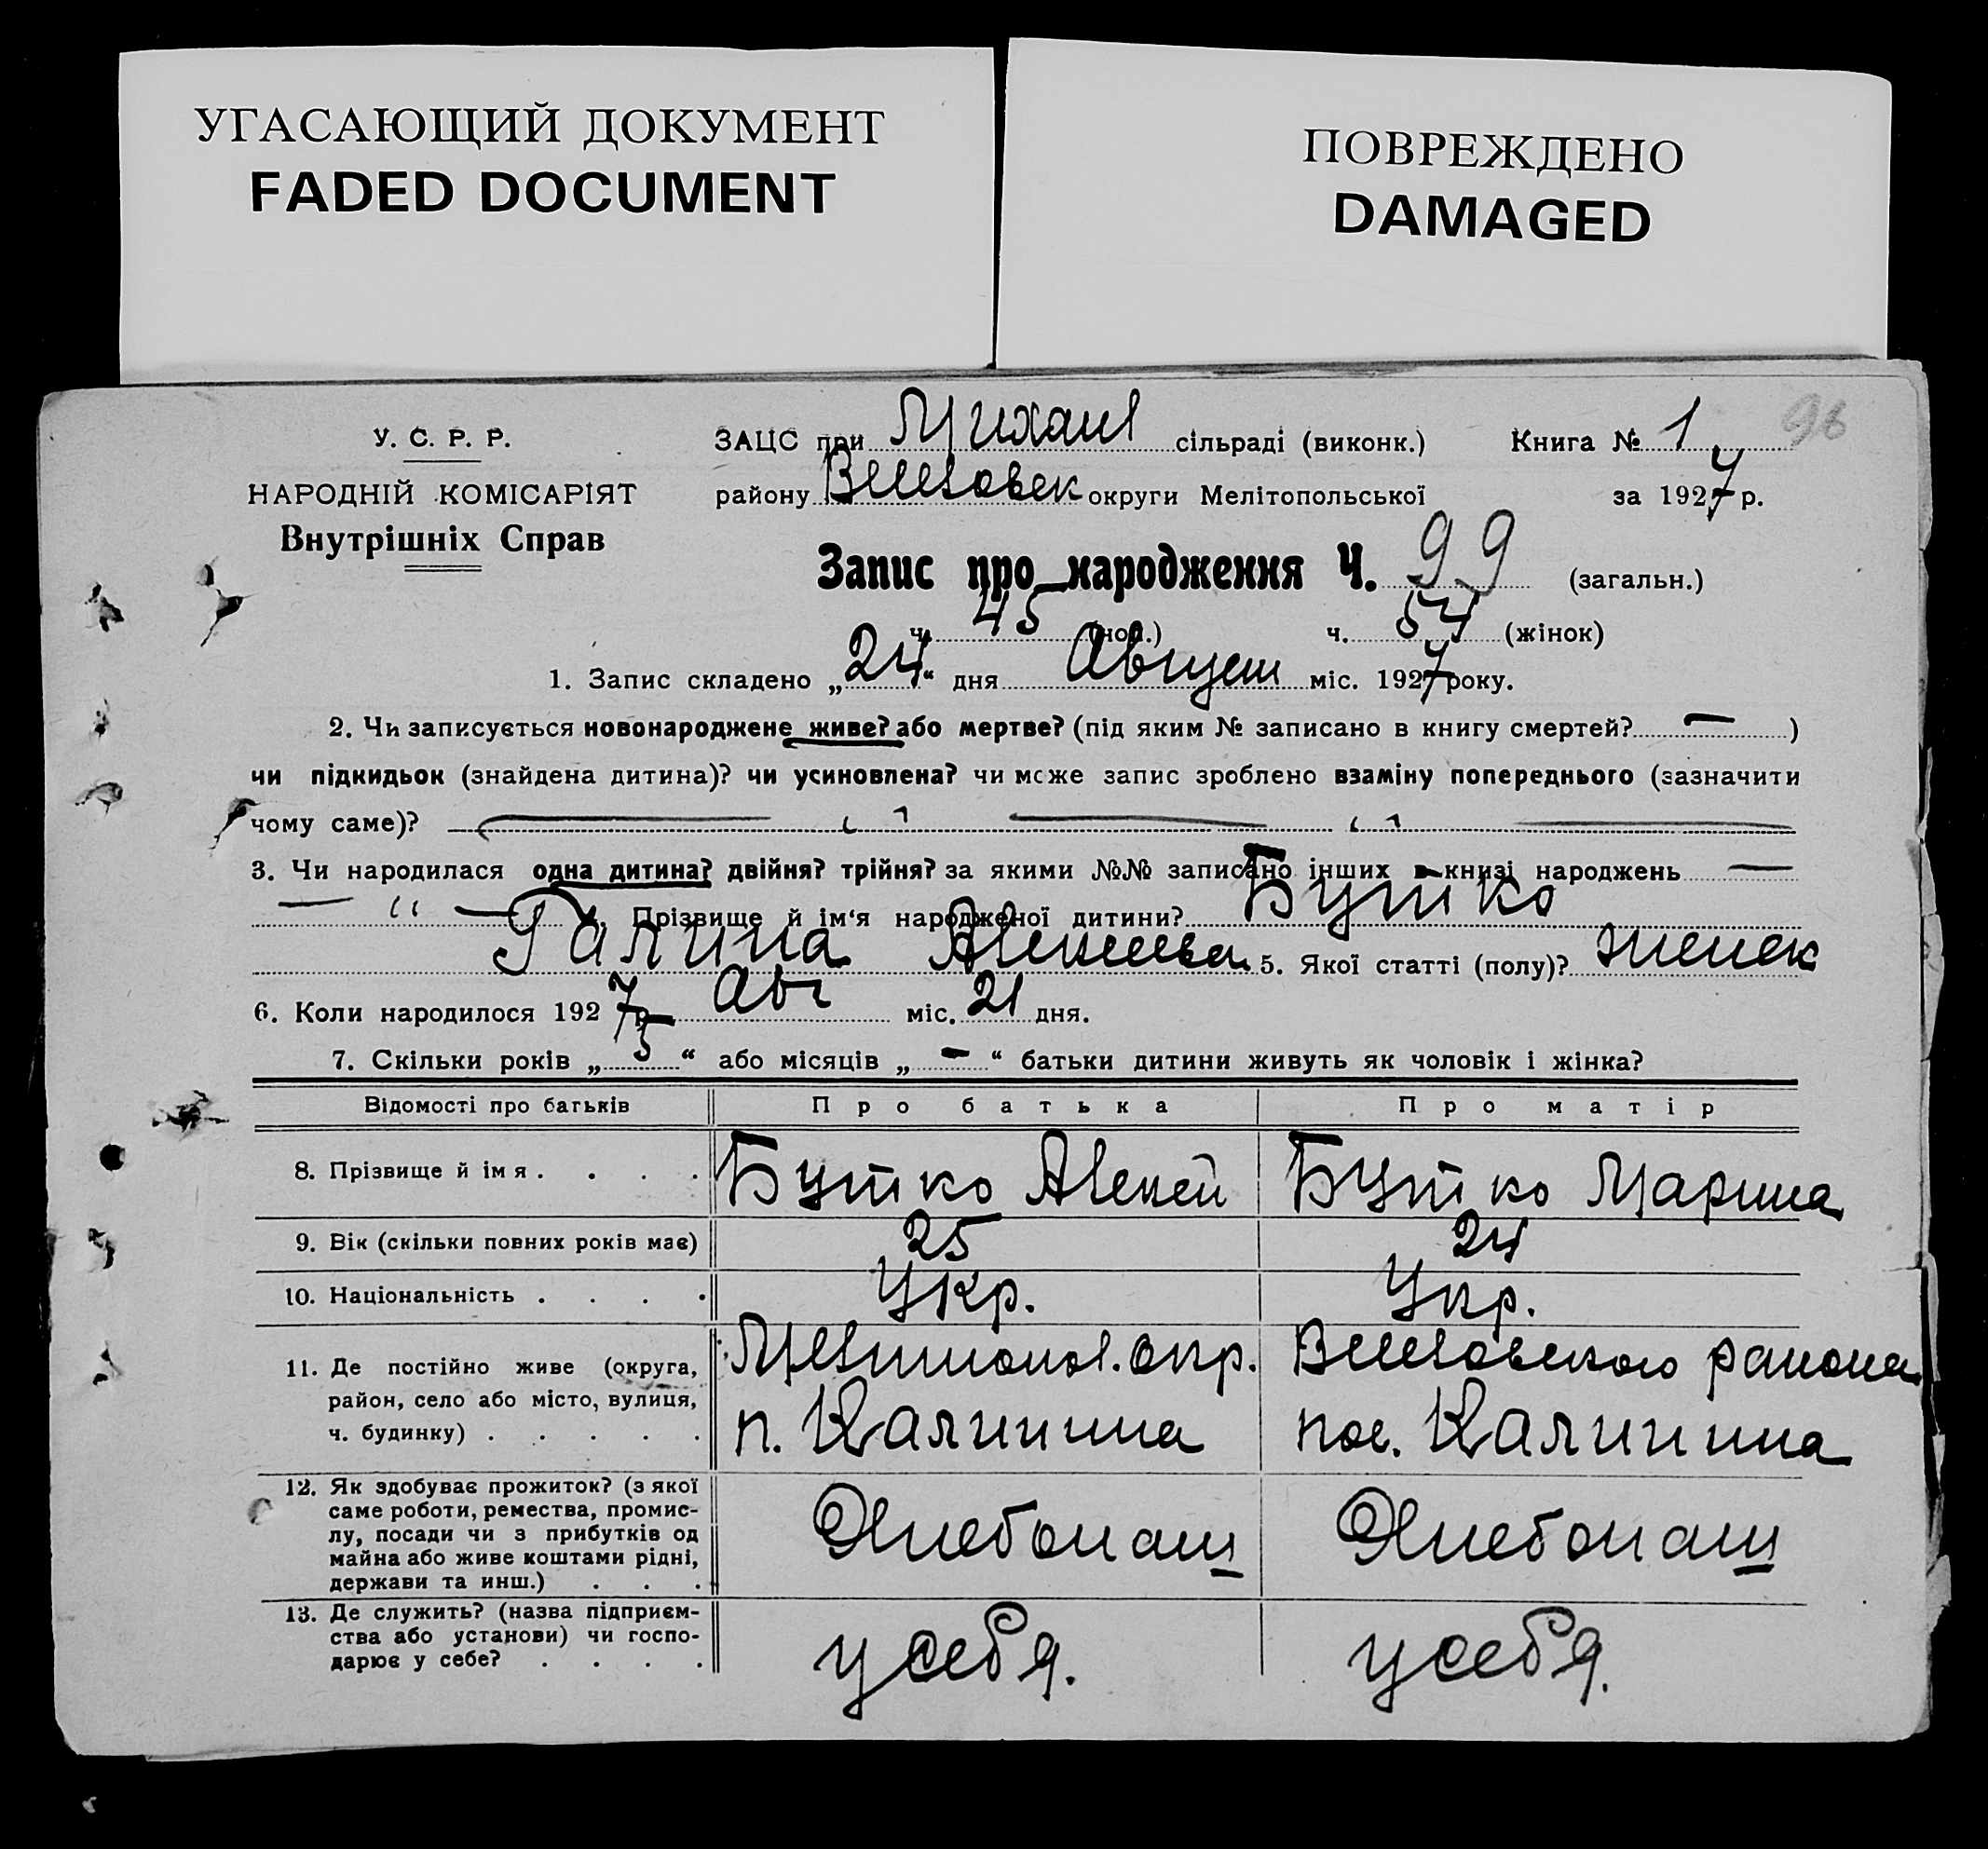 УГАСАЮЩИЙ ДОКУМЕНТ
FADED DOCUMENT
ПОВРЕЖДЕНО
DAMAGED
96
У. С. Р. Р.
НАРОДНІЙ КОМІСАРІЯТ
Внутрішніх Справ
ЗАЦС при Михайл сільраді (виконк.) Книга № 1
району Веселовск округи Мелітопольської за 1927 р.
Запис про народження Ч. 99 (загальн.)
ч. 45 (чол.) ч. 54 (жінок)
1. Запис складено „24“ дня Август міс. 1927 року.
2. Чи записується новонароджене живе? або мертве? (під яким № записано в книгу смертей? — )
чи підкидьок (знайдена дитина)? чи усиновлена? чи може запис зроблено взаміну попереднього (зазначити
чому саме)? — „ — „ —
3. Чи народилася одна дитина? двійня? трійня? за якими №№ записано інших в книзі народжень —
— „ — 4. Прізвище й ім‘я народженої дитини? Бутко
Галина Алексеева 5. Якої статті (полу)? женск
6. Коли народилося 1927 р. Авг міс. 21 дня.
7. Скільки років „ 3 “ або місяців „ — “ батьки дитини живуть як чоловік і жінка?
Відомості про батьків Про батька Про матір
8. Прізвище й імя . . . . Бутко Алексей Бутко Марина
9. Вік (скільки повних років має) 25 24
10. Національність . . . . Укр. Укр.
11. Де постійно живе (округа, район, село або місто, вулиця, ч. будинку) . . . . . Мелитопол. окр. Веселовского района
п. Калинина пос. Калинина
12. Як здобуває прожиток? (з якої
саме роботи, ремества, промис-
лу, посади чи з прибутків од
майна або живе коштами рідні,
держави та инш.) . . . Хлебопаш Хлебопаш
13. Де служить? (назва підприєм-
ства або установи) чи госпо-
дарює у себе? . . . . у себя. у себя.